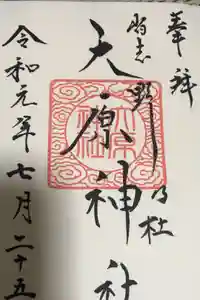 奉拝
習志野乃杜
大原神社
令和元年七月二十五